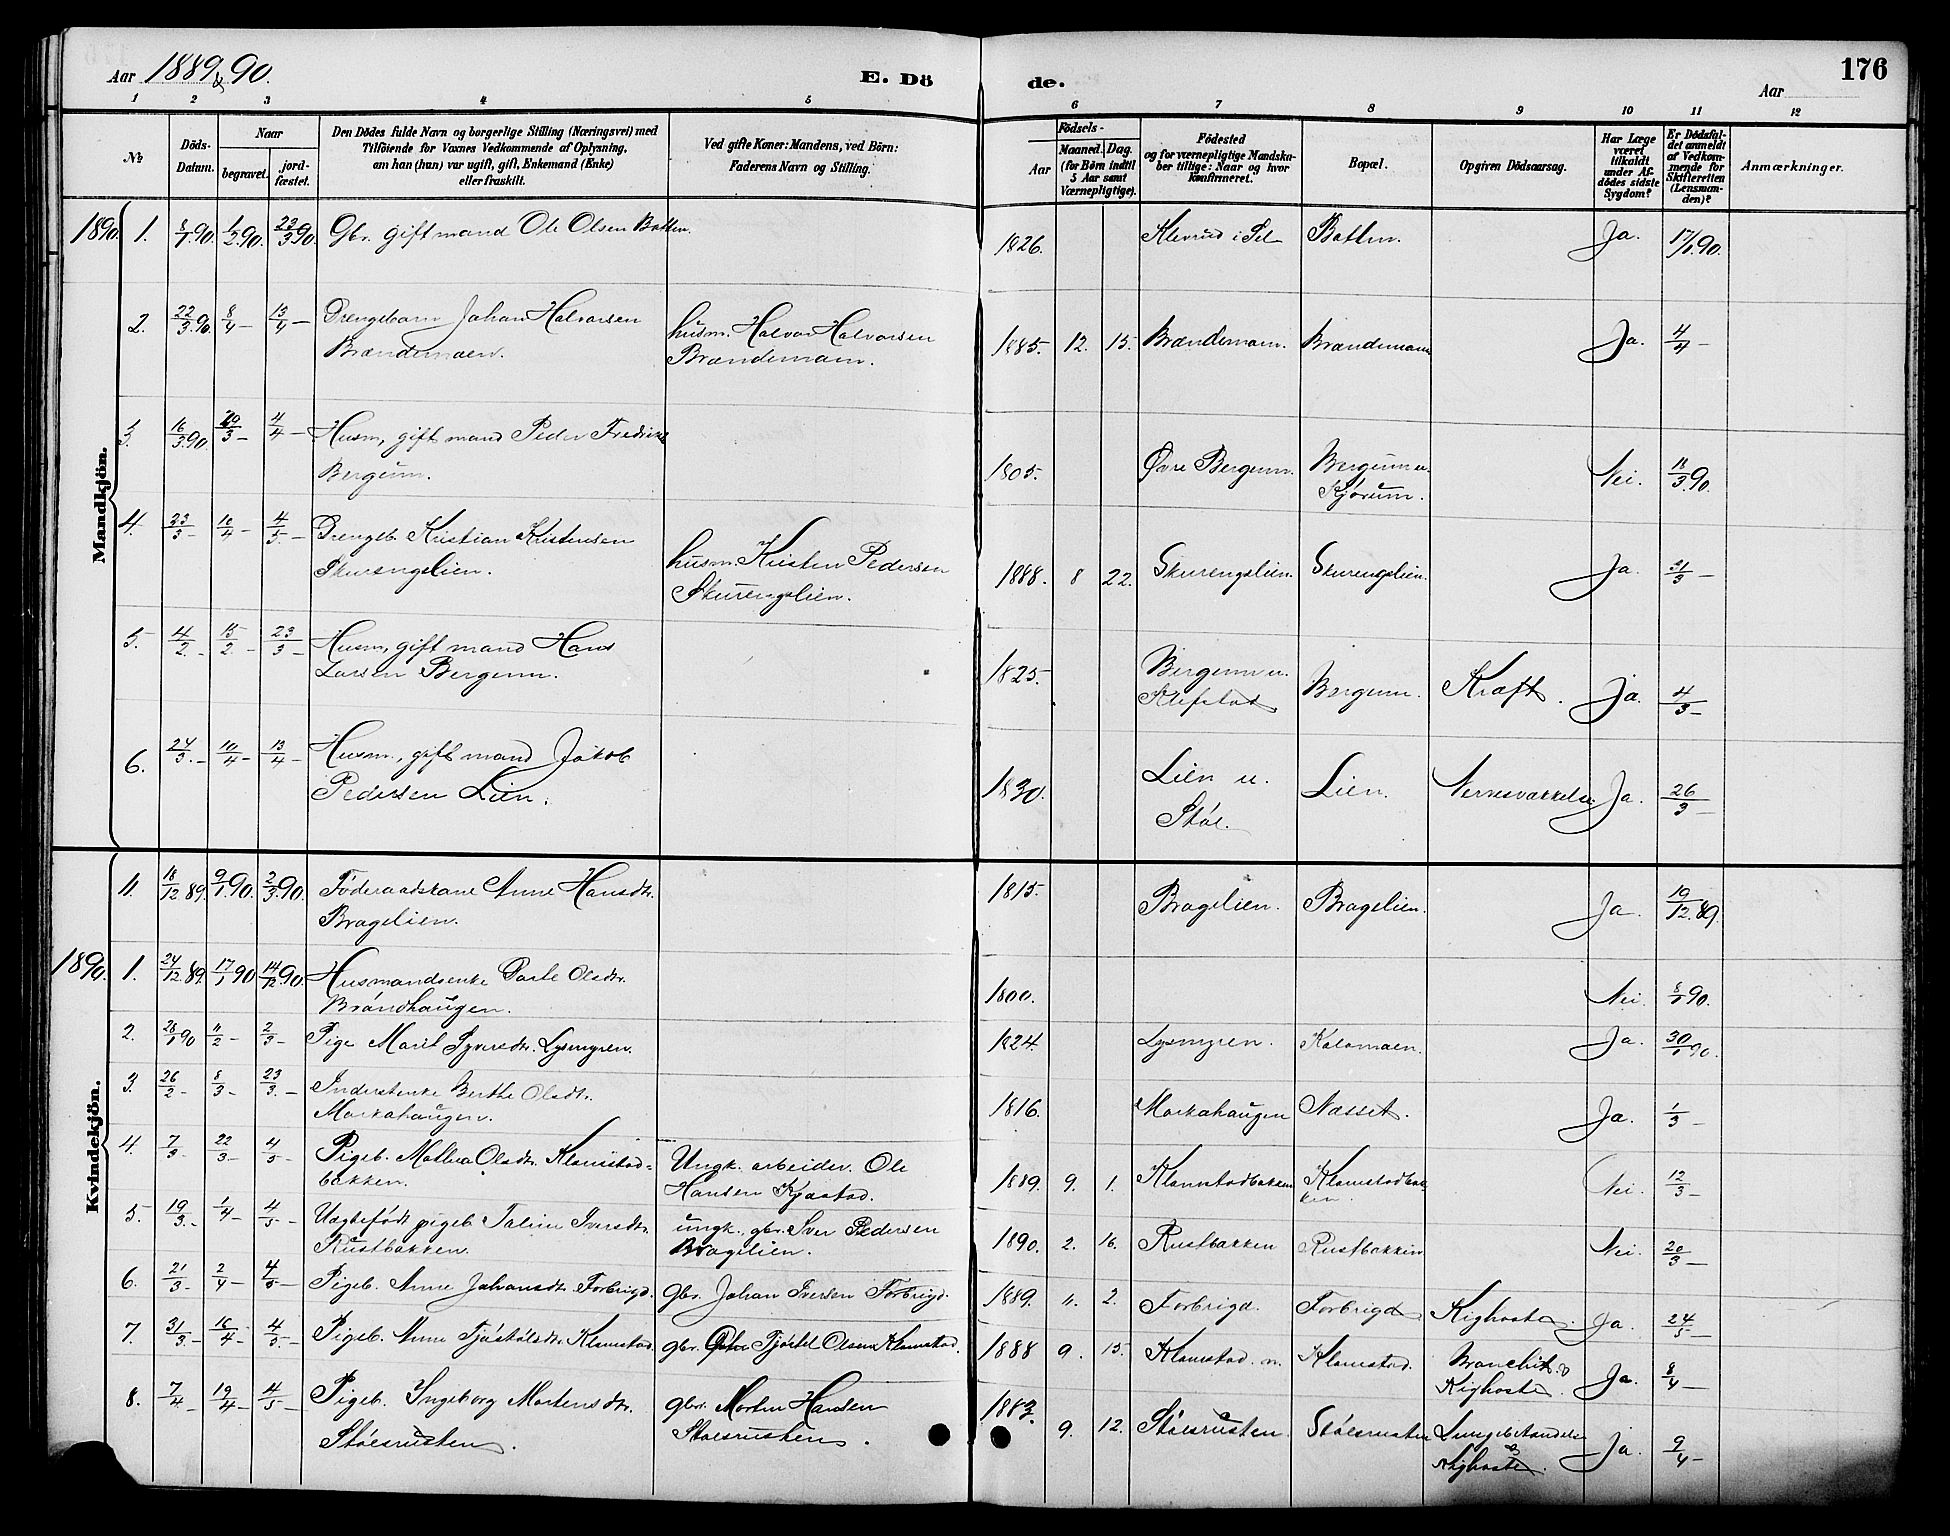 Aar 1889 & 90.
E. Dö
de.
Aar
176
1 2 3 4 5 6 7 8 9 10 11 12
№
Döds-Datum.
Naar
begravet.
jordfæstet.
Den Dödes fulde Navn og borgerlige Stilling (Næringsvei) med
Tilföiende for Voxnes Vedkommende af Oplysning,
om han (hun) var ugift, gift, Enkemand (Enke)
eller fraskilt.
Ved gifte Koner: Mandens, ved Börn:
Faderens Navn og Stilling.
Födsels-
Aar
Maaned. Dag.
(for Börn indtil
5 Aar samt
Værnepligtige).
Födested
og for værnepligtige Mandska-
ber tillige: Naar og hvor
konfirmeret.
Bopæl.
Opgiven Dödsaarsag.
Har Læge
været
tilkaldt
under Af-
dödes sidste
Sygdom?
Er Dödsfal-
det anmeldt
af Vedkom-
mende for
Skifteretten
(Lensman-
den)?
Anmærkninger.
Mandkjön.
1890. 1. 8/1 90. 1/2 90. 23/3 90. Gbr. gift mand Ole Olsen Botten. 1826. Klevrud i Sel Botten. Ja. 17/1 90.
2. 22/3 90 8/4 – 13/4 – Drengebarn Johan Halvorsen
Brændemoen.
husm. Halvor Halvorsen
Brændemoen.
1885. 12. 15. Brændemoen. Brændemoen Ja. 4/4 –
3. 16/3 90. 29/3 – 4/4 – Husm, gift mand Peder Fredriks
Bergum.
1805. Øvre Bergum. Bergum u.
Kjørum.
Nei. 18/3 90.
4. 23/3 – 10/4 – 4/5 – Drengeb. Kristian Kristensen
Skurengslien.
husm. Kristen Pedersen
Skurengslien.
1888. 8 22. Skurengslien. Skurengslien. Ja. 31/3 –
5. 4/2 – 15/2 – 23/3 – Husm, gift mand Hans
Larsen Bergum.
1825. Bergum u.
Klefstad
Bergum. Kræft. Ja. 4/3 –
6. 24/3 – 10/4 – 13/4 – Husm., gift mand Jakob
Pedersen Lien.
1830. Lien u.
Støl.
Lien. Nervesvækkelse. Ja. 26/3 –
Kvindekjön.
11. 18/12 89. 9/1 90. 2/3 90. Føderaadskone Anne Hansdtr.
Bragelien.
1815. Bragelien. Bragelien. Ja. 19/12 89.
1890. 1. 24/12 89. 17/1 90 14/12 90. Husmandsenke Olsdtr.
Brøndhaugen.
1800. Nei. 8/1 90.
2. 28/1 90 11/2 – 2/3 – Pige Marit Syversdtr. Lysmyren.
1824. Lysmyren. Kolomoen. Ja. 30/1 90.
3. 26/2 – 8/3 – 23/3 – Inderstenke Berthe Olsdtr.
Morkahaugen.
1816. Morkahaugen Næsset. Ja. 1/3 –
4. 7/3 – 22/3 – 4/5 – Pigeb. Mathea Olsdtr. Klomstad-
bakken.
Ungk. arbeider. Ole
Hansen Kjæstad.
1889. 9. 1. Klomstadbakken Klomstadbak-
ken.
Nei. 12/3 –
5. 19/3 – 1/4 – 4/5 – Uægtefødt pigeb. Taline Iversdtr.
Rustbakken.
ungk. gbr. Iver Pedersen
Bragelien.
1890. 2. 16. Rustbakken Rustbakken Nei. 20/3 –
6. 21/3 – 2/4 – 4/5 – Pigeb. Anne Johansdtr. Forbrigd. gbr. Johan Iversen Forbrigd.
1889. 11. 2. Forbrigd. Forbrigd Kighoste. Ja. 24/5 –
7. 31/3 – 16/4 – 4/5 – Pigeb. Anne Tjøstelsdtr. Klomstad. gbr. Tjøstel Olsen Klomstad.
1888 9. 15. Klomstad. n. Klomstad. Bronchit. &
Kighoste.
Ja. 8/4 –
8. 7/4 – 19/4 – 4/5 – Pigeb. Ingeborg Mortensdtr.
Stølsrusten.
gbr. Morten Hansen
Stølsrusten.
1883. 9. 12. Stølsrusten. Stølsrusten Lungebetændelse
& Kighoste.
Ja. 9/4 –